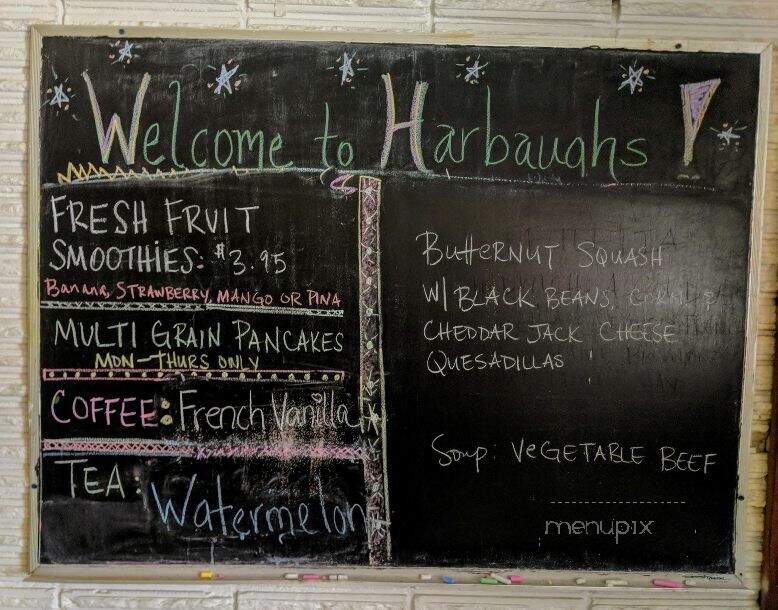 Welcome to Harbaughs!
FRESH FRUIT
SMOOTHIES: $3.95
Banana, STRAWBERRY, MANGO OR PINA
MULTI GRAIN PANCAKES
MON-THURS ONLY
COFFEE: French Vanilla
TEA: Watermelon
BUTTERNUT SQUASH
W/ BLACK BEANS, CORN &
CHEDDAR JACK CHEESE
QUESADILLAS
Soup: VEGETABLE BEEF
menupix